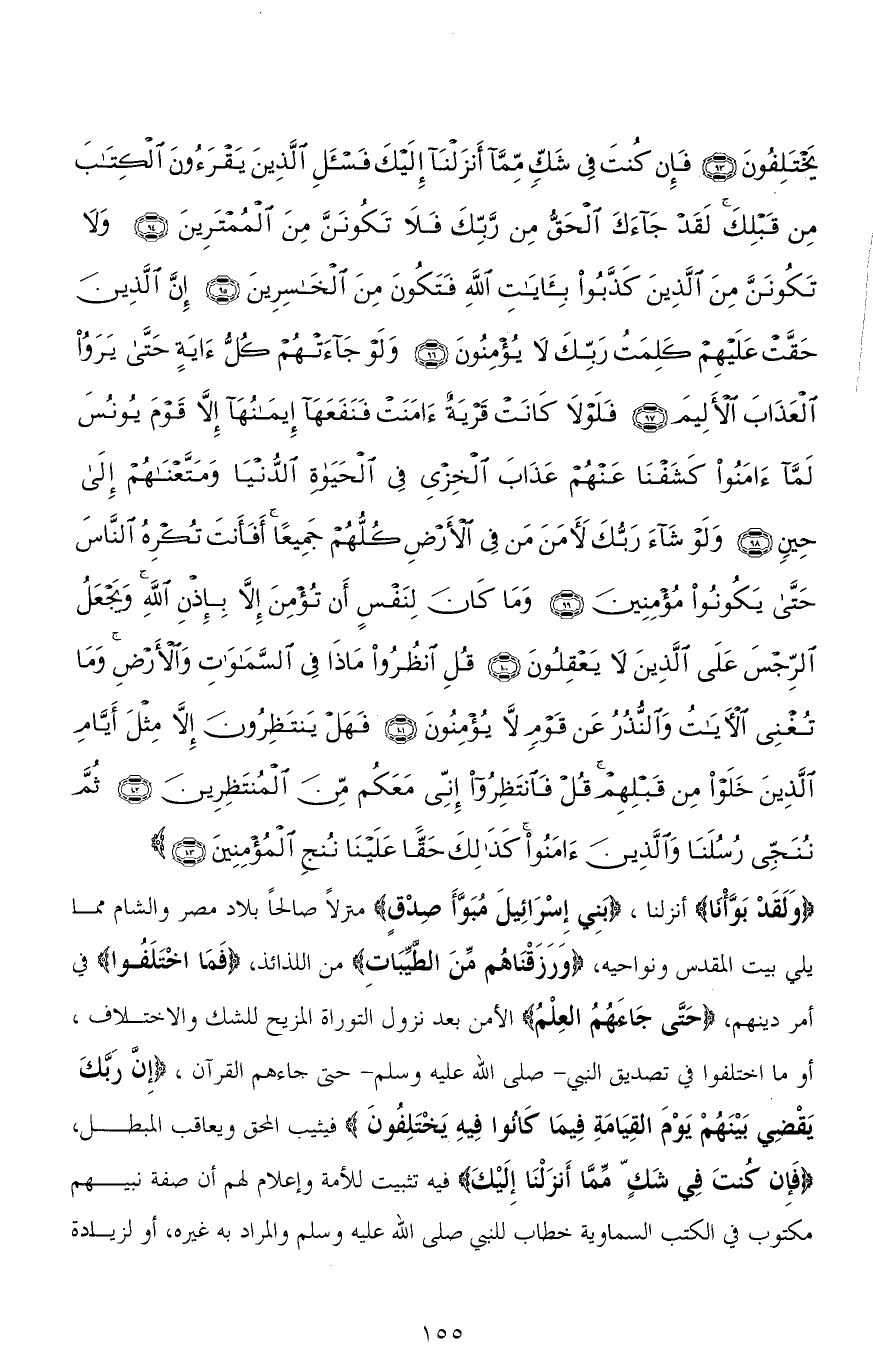 يَخْتَلِفُونَ ﴿٩٣﴾ فَإِن كُنتَ فِى شَكٍّ مِّمَّآ أَنزَلْنَآ إِلَيْكَ فَسْـَٔلِ ٱلَّذِينَ يَقْرَءُونَ ٱلْكِتَـٰبَ
مِن قَبْلِكَ ۚ لَقَدْ جَآءَكَ ٱلْحَقُّ مِن رَّبِّكَ فَلَا تَكُونَنَّ مِنَ ٱلْمُمْتَرِينَ ﴿٩٤﴾ وَلَا
تَكُونَنَّ مِنَ ٱلَّذِينَ كَذَّبُوا۟ بِـَٔايَـٰتِ ٱللَّهِ فَتَكُونَ مِنَ ٱلْخَـٰسِرِينَ ﴿٩٥﴾ إِنَّ ٱلَّذِينَ
حَقَّتْ عَلَيْهِمْ كَلِمَتُ رَبِّكَ لَا يُؤْمِنُونَ ﴿٩٦﴾ وَلَوْ جَآءَتْهُمْ كُلُّ ءَايَةٍ حَتَّىٰ يَرَوُا۟
ٱلْعَذَابَ ٱلْأَلِيمَ ﴿٩٧﴾ فَلَوْلَا كَانَتْ قَرْيَةٌ ءَامَنَتْ فَنَفَعَهَآ إِيمَـٰنُهَآ إِلَّا قَوْمَ يُونُسَ
لَمَّآ ءَامَنُوا۟ كَشَفْنَا عَنْهُمْ عَذَابَ ٱلْخِزْىِ فِى ٱلْحَيَوٰةِ ٱلدُّنْيَا وَمَتَّعْنَـٰهُمْ إِلَىٰ
حِينٍ ﴿٩٨﴾ وَلَوْ شَآءَ رَبُّكَ لَأَمَنَ مَن فِى ٱلْأَرْضِ كُلُّهُمْ جَمِيعًا ۚ أَفَأَنتَ تُكْرِهُ ٱلنَّاسَ
حَتَّىٰ يَكُونُوا۟ مُؤْمِنِينَ ﴿٩٩﴾ وَمَا كَانَ لِنَفْسٍ أَن تُؤْمِنَ إِلَّا بِإِذْنِ ٱللَّهِ ۚ وَيَجْعَلُ
ٱلرِّجْسَ عَلَى ٱلَّذِينَ لَا يَعْقِلُونَ ﴿١٠٠﴾ قُلِ ٱنظُرُوا۟ مَاذَا فِى ٱلسَّمَـٰوَٰتِ وَٱلْأَرْضِ ۚ وَمَا
تُغْنِى ٱلْأَيَـٰتُ وَٱلنُّذُرُ عَن قَوْمٍ لَّا يُؤْمِنُونَ ﴿١٠١﴾ فَهَلْ يَنتَظِرُونَ إِلَّا مِثْلَ أَيَّامِ
ٱلَّذِينَ خَلَوْا۟ مِن قَبْلِهِمْ ۚ قُلْ فَٱنتَظِرُوٓا۟ إِنِّى مَعَكُم مِّنَ ٱلْمُنتَظِرِينَ ﴿١٠٢﴾ ثُمَّ
نُنَجِّى رُسُلَنَا وَٱلَّذِينَ ءَامَنُوا۟ ۚ كَذَٰلِكَ حَقًّا عَلَيْنَا نُنجِ ٱلْمُؤْمِنِينَ ﴿١٠٣﴾ ﴾
﴿وَلَقَدْ بَوَّأْنَا﴾ أنزلنا ، ﴿بَنِي إِسْرَائِيلَ مُبَوَّأَ صِدْقٍ﴾ منزلاً صالحاً بلاد مصر والشام مما
يلي بيت المقدس ونواحيه، ﴿وَرَزَقْنَاهُم مِّنَ الطَّيِّبَاتِ﴾ من اللذائذ، ﴿فَمَا اخْتَلَفُوا﴾ في
أمر دينهم، ﴿حَتَّى جَاءَهُمُ العِلْمُ﴾ الأمن بعد نزول التوراة المزيح للشك والاختلاف ،
أو ما اختلفوا في تصديق النبي- صلى الله عليه وسلم- حتى جاءهم القرآن ، ﴿إِنَّ رَبَّكَ
يَقْضِي بَيْنَهُمْ يَوْمَ القِيَامَةِ فِيمَا كَانُوا فِيهِ يَخْتَلِفُونَ ﴾ فيثيب المحق ويعاقب المبطل،
﴿فَإِن كُنتَ فِي شَكٍّ مِّمَّا أَنزَلْنَا إِلَيْكَ﴾ فيه تثبيت للأمة وإعلام لهم أن صفة نبيهم
مكتوب في الكتب السماوية خطاب للنبي صلى الله عليه وسلم والمراد به غيره، أو لزيادة
١٥٥